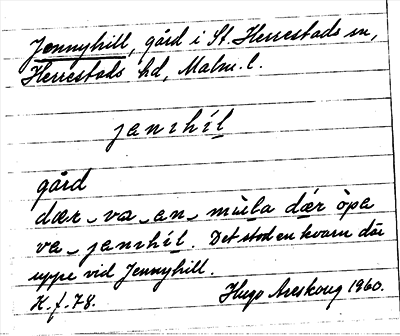 Jennyhill, gård i St. Herrestads sn,
Herrestads hd, Malm. l.
janıhíl
gård
dær va en mùla dǽr òpa
va janıhíl. Det stod en kvarn där
uppe vid Jennyhill.
K. f. 78. Hugo Areskoug 1960.